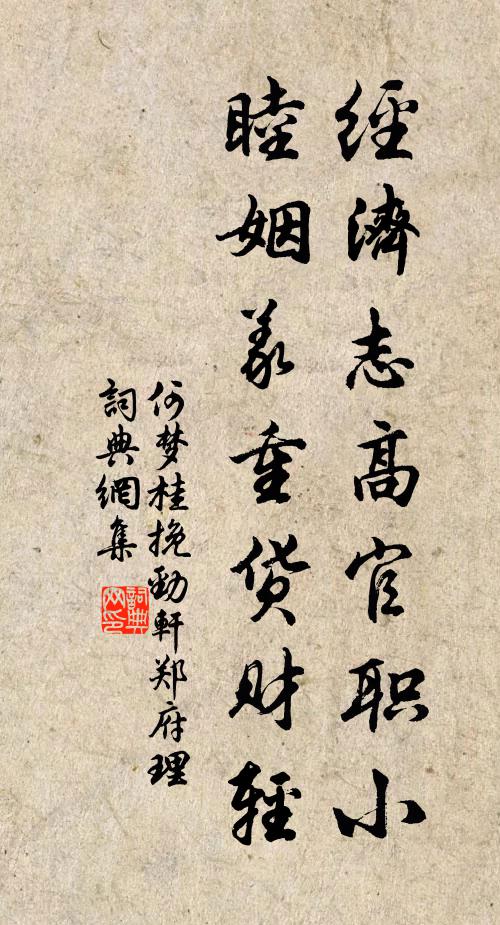 經濟志高官职小
睦姻义重货财輕
何梦桂挽勁軒郑府理
詞典網集
詞典网印